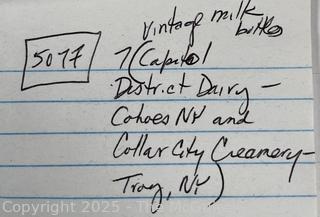 vintage milk
bottles
5077
7 (Capitol
District Dairy -
Cohoes NY and
Collar City Creamery -
Troy, NY)
Copyright 2025 -